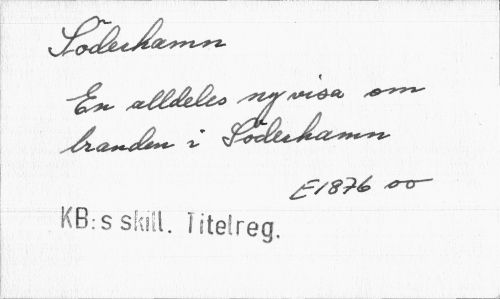 Söderhamn
En alldeles ny visa om
branden i Söderhamn
E1876 oo
KB:s skill. Titelreg.